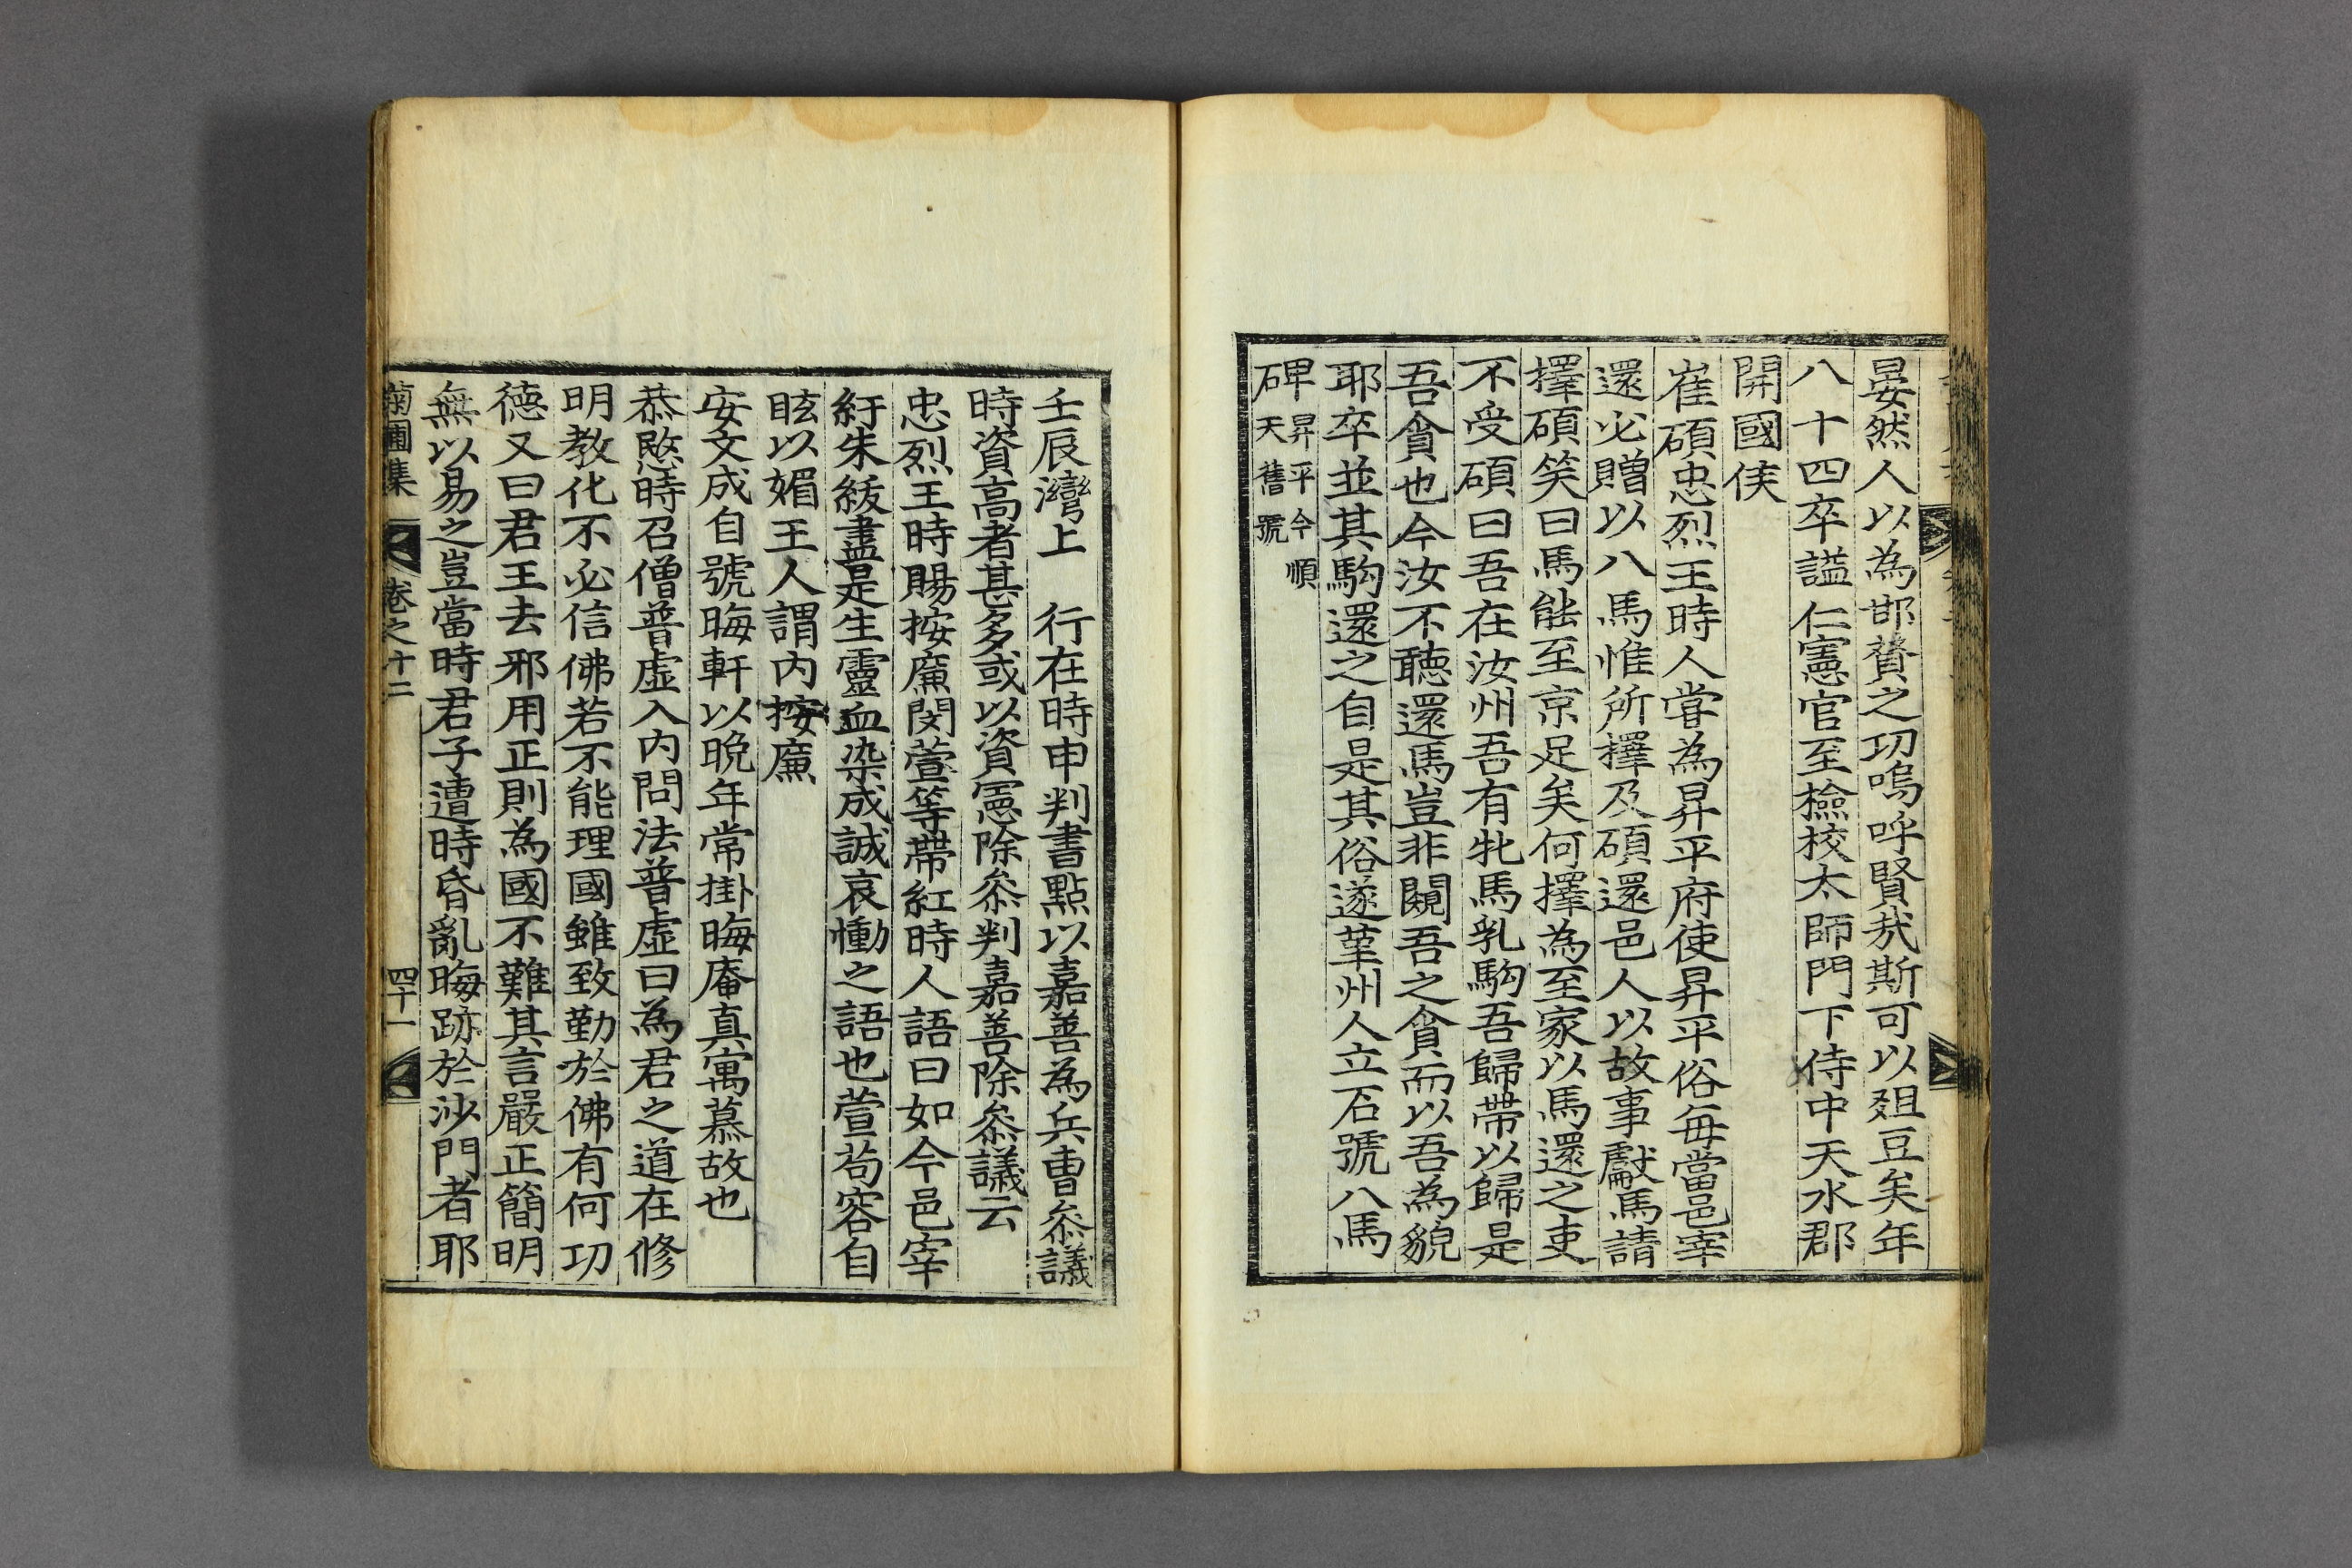 晏然人以為邯贊之功嗚呼賢㢤斯可以爼豆矣年
八十四卒謚仁憲官至檢校太師門下侍中天水郡
開國侯
崔碩忠烈王時人甞為昇平府使昇平俗每當邑宰
還必贈以八馬惟所擇及碩還邑人以故事獻馬請
擇碩笑曰馬能至京足矣何擇為至家以馬還之吏
不受碩曰吾在汝州吾有牝馬乳駒吾歸帶以歸是
吾貪也今汝不聽還馬豈非闚吾之貪而以吾為貌
耶卒並其駒還之自是其俗遂革州人立石號八馬
碑
昇平今順
天舊號
壬辰灣上 行在時申判書點以嘉善為兵曹叅議
時資高者甚多或以資憲除叅判嘉善除叅議云
忠烈王時賜按廉閔萱等帶紅時人語曰如今邑宰
紆朱紱盡是生靈血染成誠哀慟之語也萱苟容自
眩以媚王人謂内按廉
安文成自號晦軒以晩年常掛晦庵真寓慕故也
恭愍時召僧普虛入内問法普虛曰為君之道在修
明教化不必信佛若不能理國雖致勤於佛有何功
德又曰君王去邪用正則為國不難其言嚴正簡明
無以易之豈當時君子遭時昏亂晦跡於沙門者耶
菊圃集 卷之十二 四十一